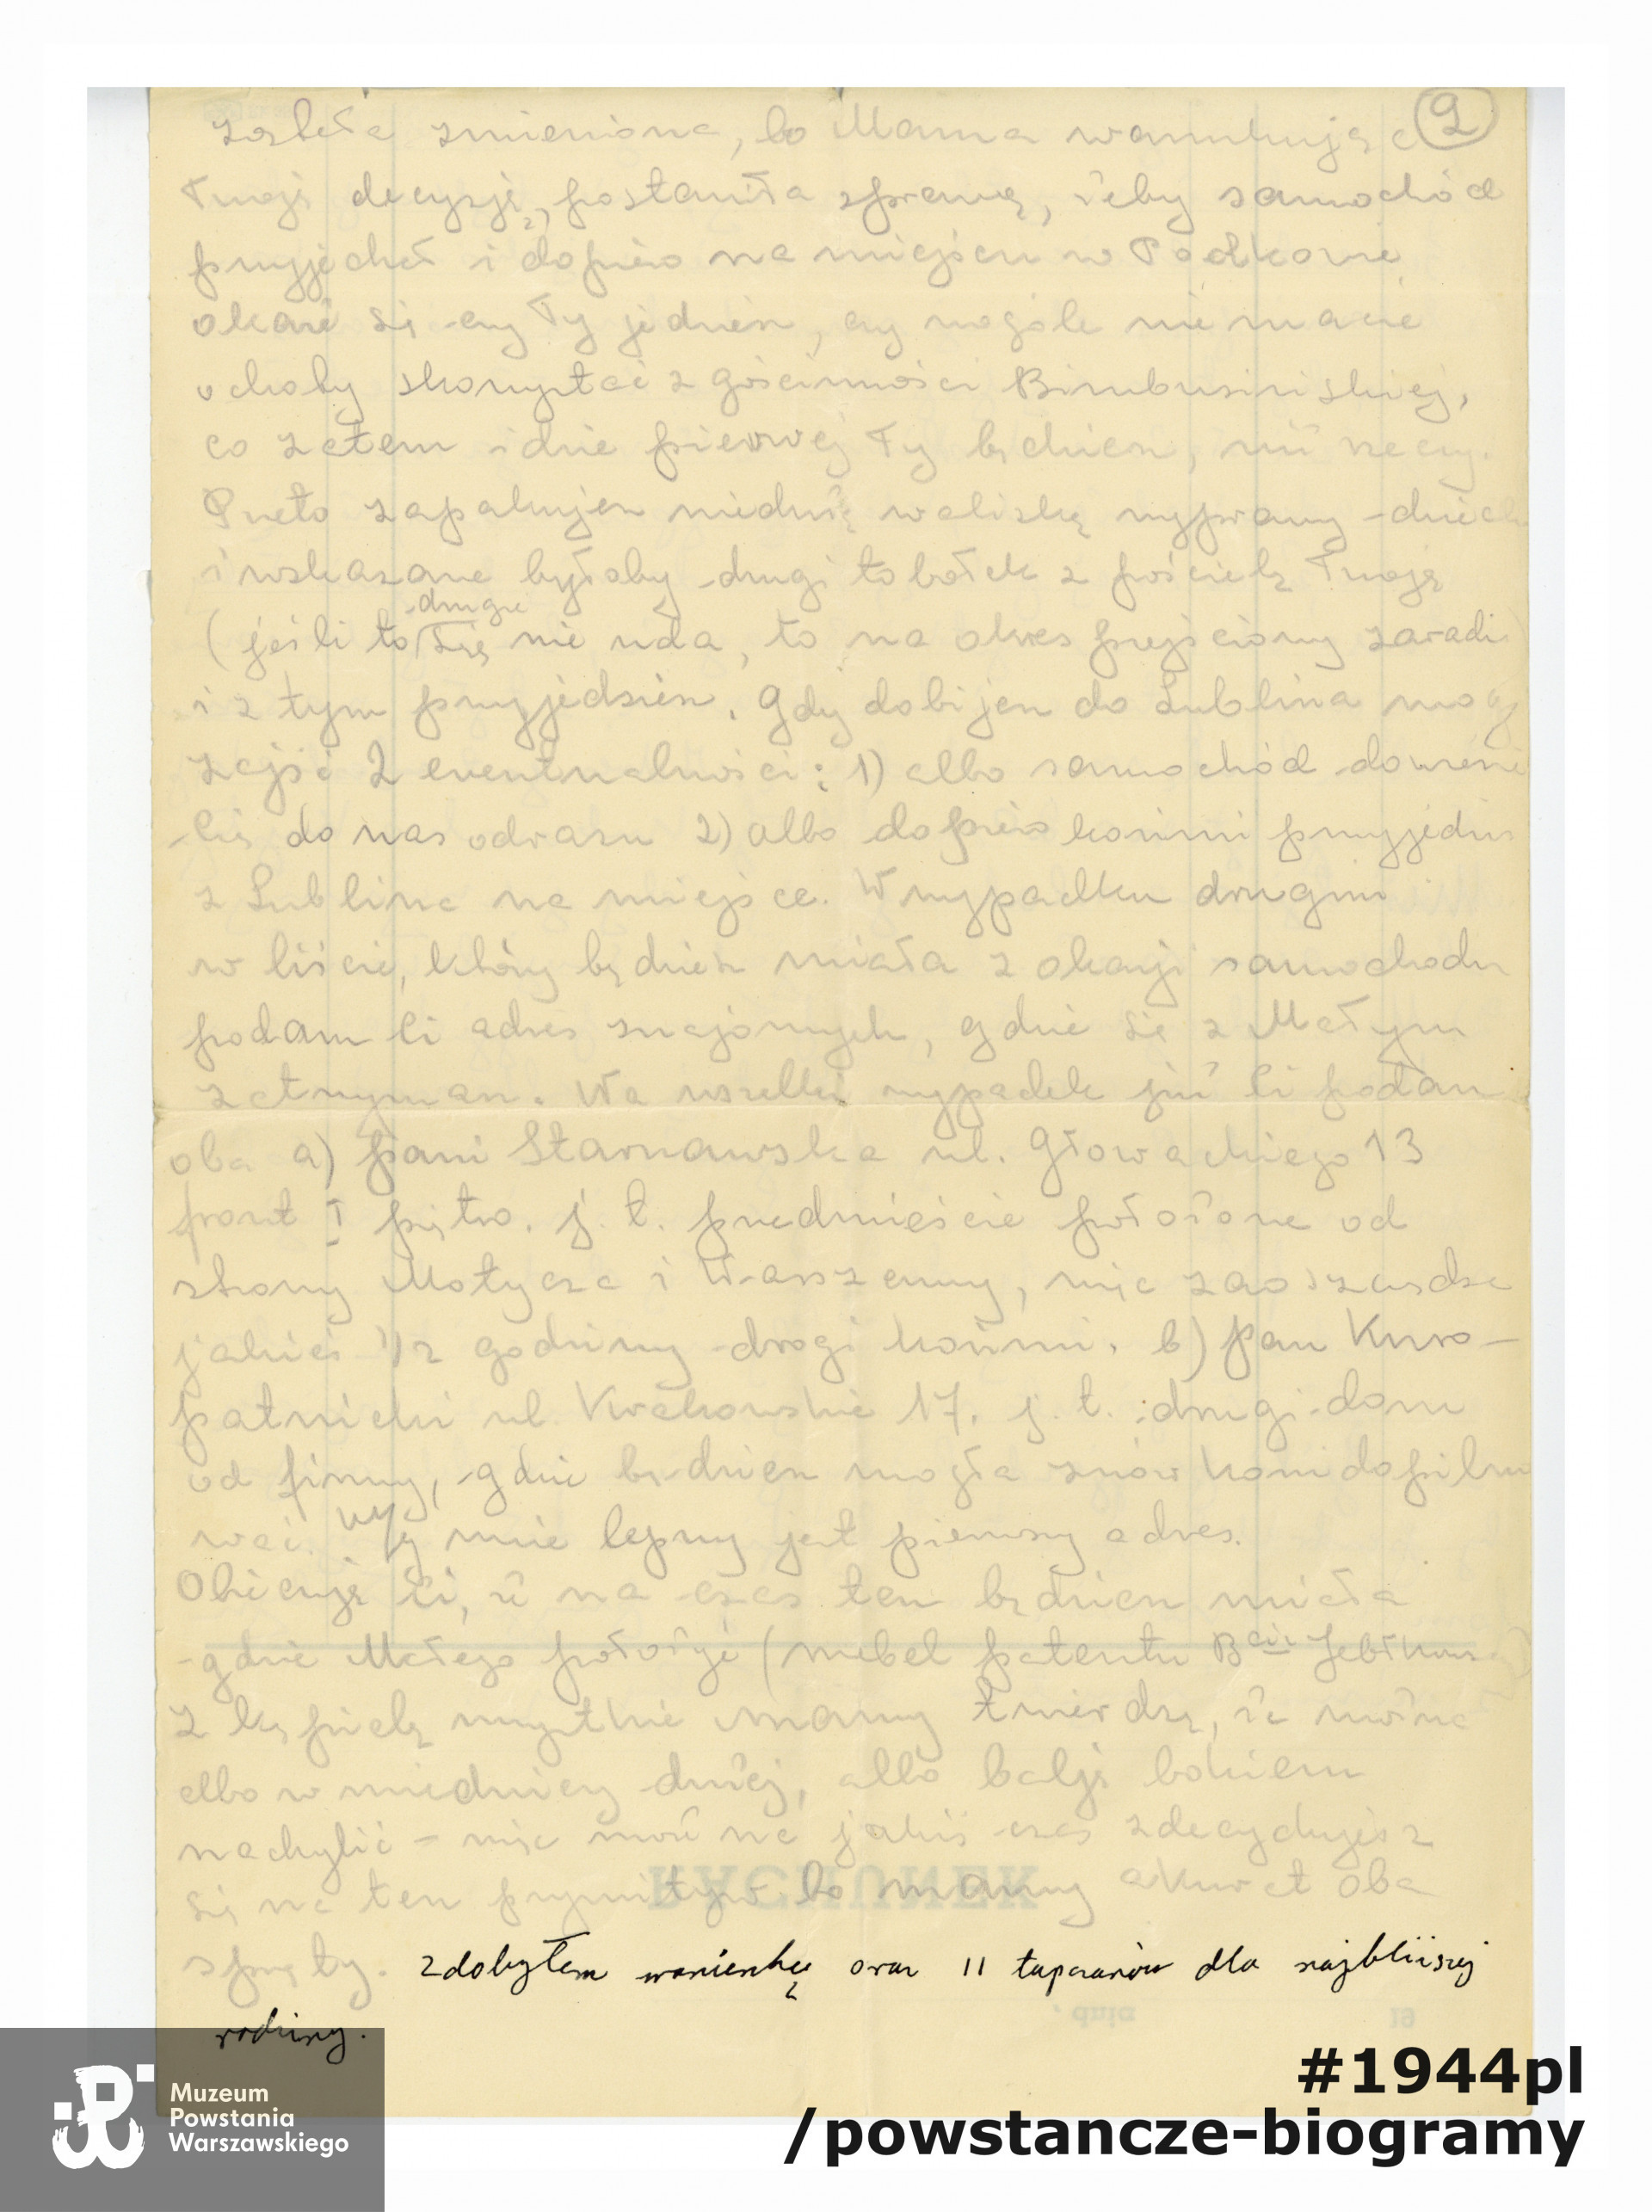 2
została zmieniona, bo Mama warunkując
Twoją decyzję, postawiła sprawę, żeby samochód
przyjechał i dopiero na miejscu w Podkowie
okaże się czy Ty jedziesz, czy wogóle nie macie
ochoty skorzystać z gościnności
co zatem idzie pierwej Ty będziesz, niż rzeczy.
Przeto zapakujesz walizkę wyprawy dziecka
i wskazane byłoby drugi tobołek z pościelą Twoją
(jeśli to drugie się nie uda, to na okres przejściowy zaradzi
i z tym przyjedziesz. Gdy dobijesz do Lublina mogą
zajść 2 ewentualności: 1) albo samochód dowiezie
Cię do nas odrazu 2) albo dopiero końmi przyjedziesz
z Lublina na miejsce. W wypadku drugim
w liście, który będziesz miała z okazji samochodu
podam Ci adres znajomych, gdzie się z Małym
zatrzymasz. Na wszelki wypadek już Ci podam
oba a) pani Starnawska ul. Głowackiego 13
front I piętro. j. t. przedmieście położone od
strony Motycza i Warszawy, więc zaoszczędza
jakieś 1/2 godziny drogi końmi. b) pan Kuro-
patnicki ul. Krakowskie 17. j. t. drugi dom
od firmy, gdzie będziesz mogła znów koni dopilno
wać. Wg mnie lepszy jest pierwszy adres.
Obiecuję Ci, że na czas ten będziesz miała
gdzie Małego położyć (mebel patentu B-ci Jabłkows.)
Z kąpielą wszystkie mamy twierdzą, że można
albo w miednicy dużej, albo balję bokiem
nachylić – więc może na jakiś czas zdecydujesz
się na ten prymityw bo mamy akurat oba
sprzęty. Zdobyłem wanienkę oraz 11 tapczanów dla najbliższej
rodziny.
RACHUNEK
, dnia 19
Muzeum
Powstania
Warszawskiego
#1944pl
/powstancze-biogramy